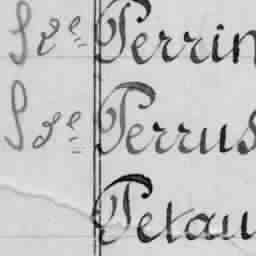 S 2e Perrin
S 3e Perrus
Petau